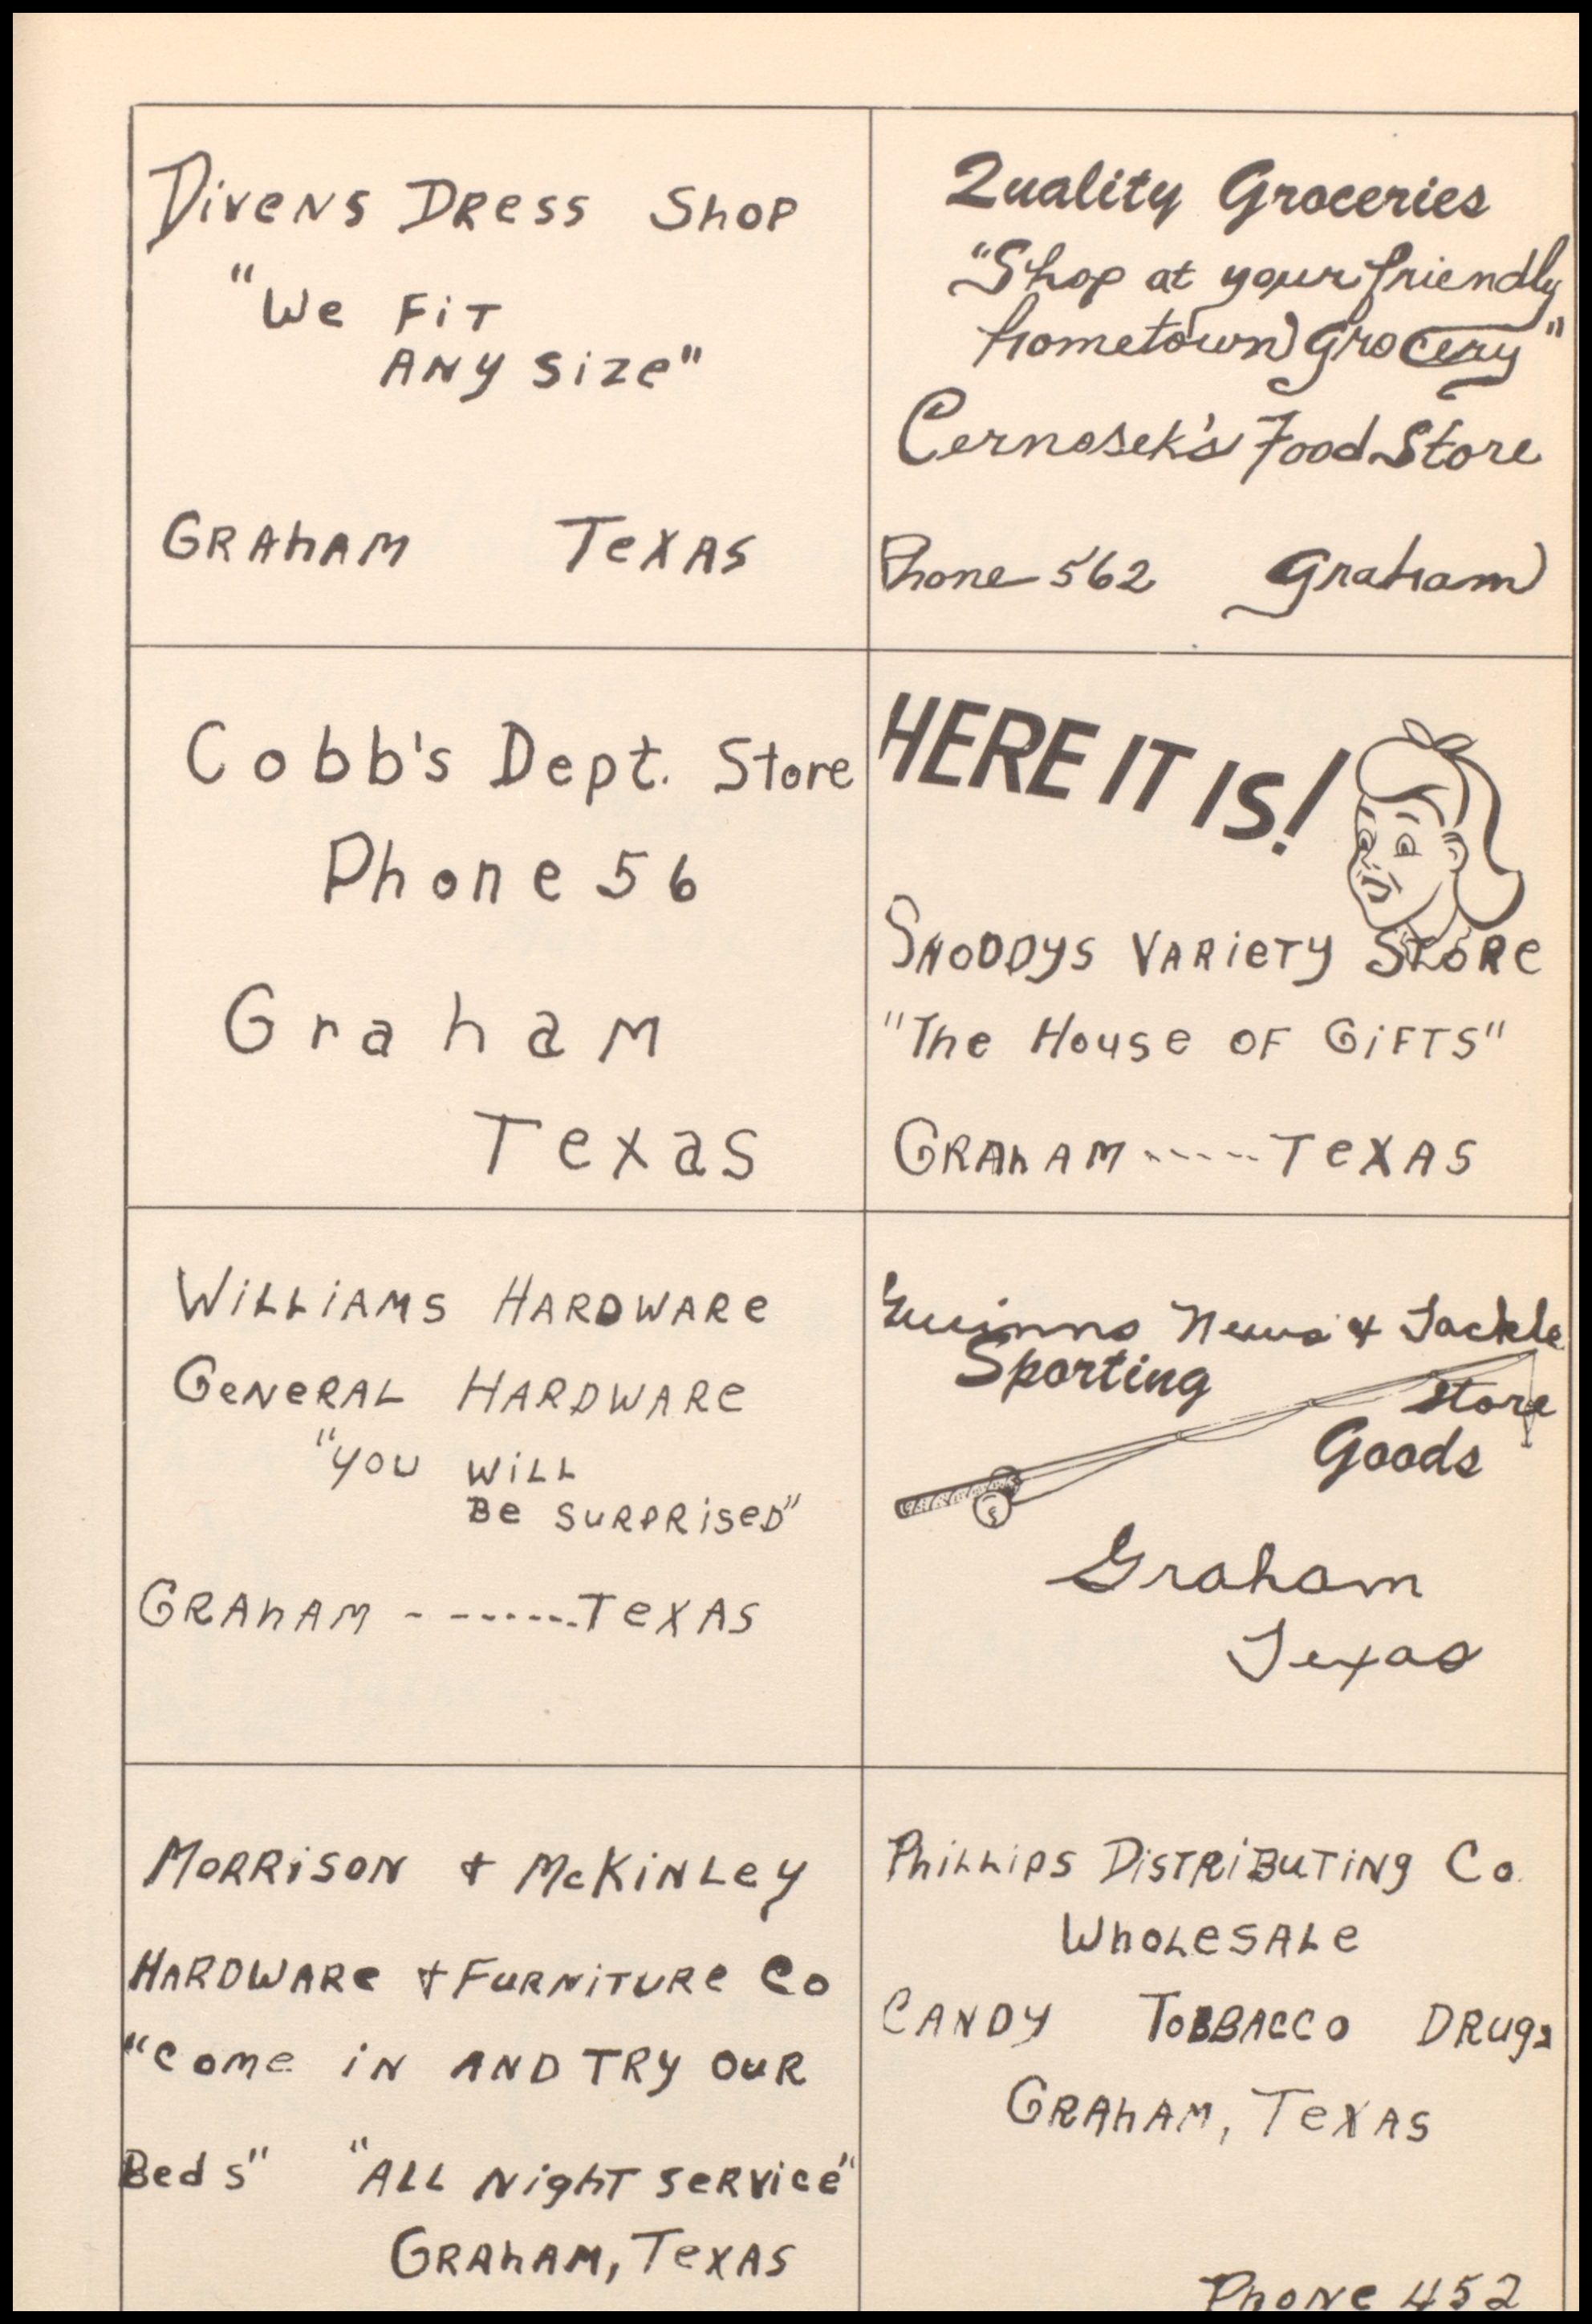 Divens Dress Shop
"We Fit
Any Size"
Graham Texas
Quality Groceries
"Shop at your friendly
hometown grocery"
Cernosek's Food Store
Phone 562 Graham
Cobb's Dept. Store
Phone 56
Graham
Texas
HERE IT IS!
Snoddys Variety Store
"The House of Gifts"
Graham-----Texas
Williams Hardware
General Hardware
"You will
Be surprised"
Graham - ------Texas
Guinns News & Tackle
Sporting
Store
Goods
Graham
Texas
Morrison & McKinley
Hardware & Furniture Co
"Come in and try our
Beds" "All Night Service"
Graham, Texas
Phillips Distributing Co.
Wholesale
Candy Tobbacco Drugs
Graham, Texas
Phone 452